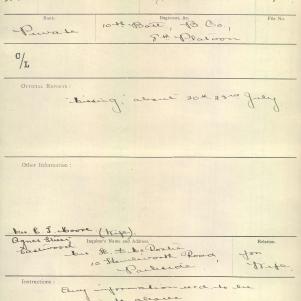 Rank.
Regiment, &c.
File No.
Private
10th Batt, B Co,
8th Platoon
C/L
OFFICIAL REPORTS:
"Missing" about 20th 23rd July
Other Information:
Mrs E. J. Moore (Wife)
Agnes Street
Eastwood
Inquirer's Name and Address.
Relation.
Mrs
Road,
Parkside
Wife
Instructions:
Any information sent to be
above